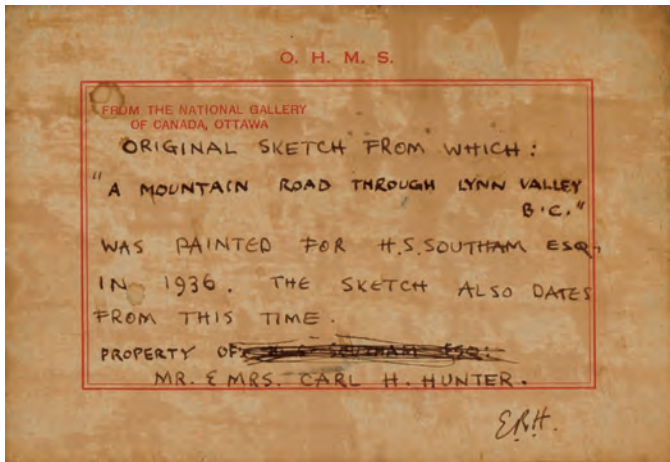 O. H. M. S.
FROM THE NATIONAL GALLERY
OF CANADA, OTTAWA
ORIGINAL SKETCH FROM WHICH :
"A MOUNTAIN ROAD THROUGH LYNN VALLEY
B.C."
WAS PAINTED FOR H.S. SOUTHAM ESQ.,
IN 1936. THE SKETCH ALSO DATES
FROM THIS TIME.
PROPERTY OF: H.S. SOUTHAM ESQ:
MR. & MRS. CARL H. HUNTER.
E.R.H.